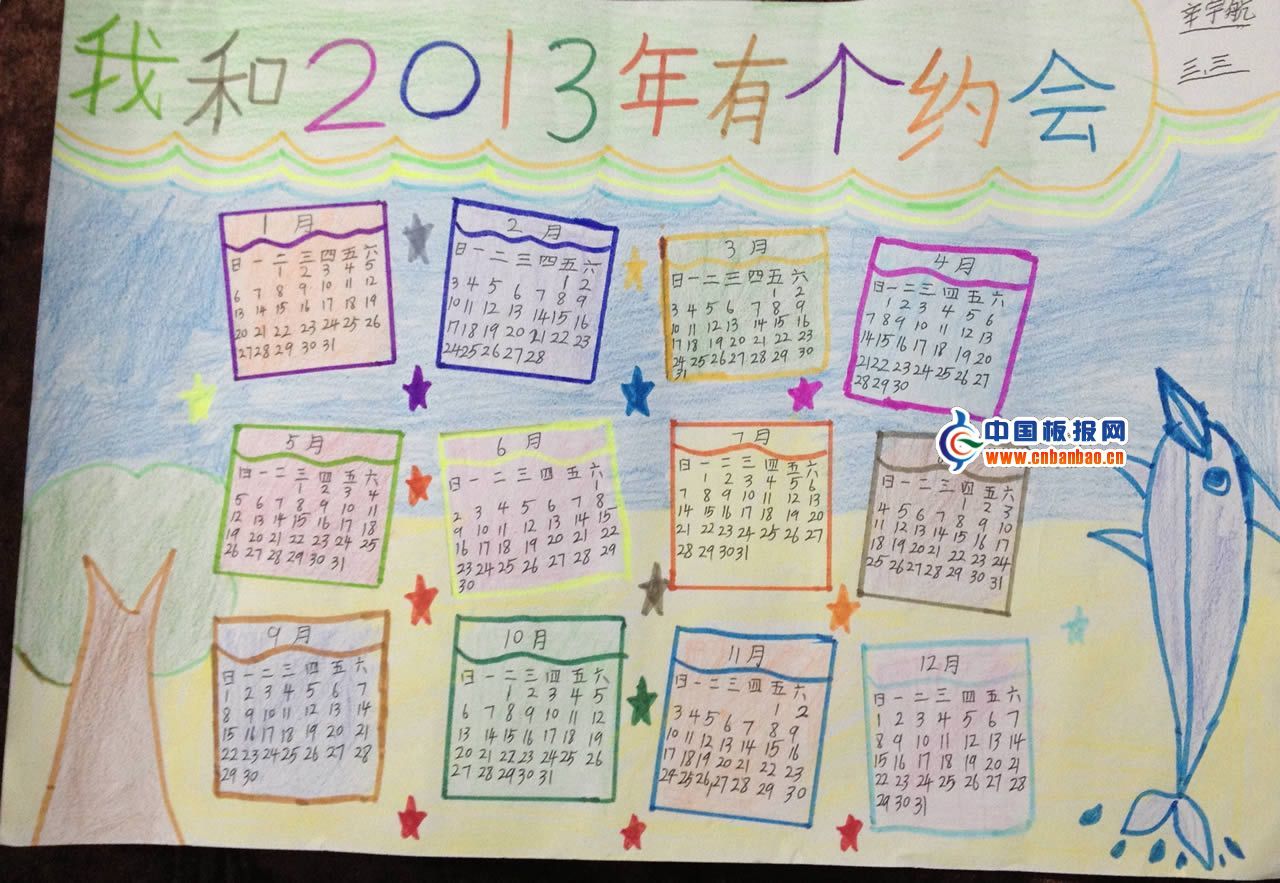 我和2013年有个约会
辛宇航
三.三
1月
日 一 二 三 四 五 六
1 2 3 4 5
6 7 8 9 10 11 12
13 14 15 16 17 18 19
20 21 22 23 24 25 26
27 28 29 30 31
2月
日 一 二 三 四 五 六
1 2
3 4 5 6 7 8 9
10 11 12 13 14 15 16
17 18 19 20 21 22 23
24 25 26 27 28
3月
日 一 二 三 四 五 六
1 2
3 4 5 6 7 8 9
10 11 12 13 14 15 16
17 18 19 20 21 22 23
24 25 26 27 28 29 30
31
4月
日 一 二 三 四 五 六
1 2 3 4 5 6
7 8 9 10 11 12 13
14 15 16 17 18 19 20
21 22 23 24 25 26 27
28 29 30
中国板报网
www.cnbanbao.cn
5月
日 一 二 三 四 五 六
1 2 3 4
5 6 7 8 9 10 11
12 13 14 15 16 17 18
19 20 21 22 23 24 25
26 27 28 29 30 31
6月
日 一 二 三 四 五 六
1
2 3 4 5 6 7 8
9 10 11 12 13 14 15
16 17 18 19 20 21 22
23 24 25 26 27 28 29
30
7月
日 一 二 三 四 五 六
1 2 3 4 5 6
7 8 9 10 11 12 13
14 15 16 17 18 19 20
21 22 23 24 25 26 27
28 29 30 31
日 一 二 三 四 五 六
1 2 3
4 5 6 7 8 9 10
11 12 13 14 15 16 17
18 19 20 21 22 23 24
25 26 27 28 29 30 31
9月
日 一 二 三 四 五 六
1 2 3 4 5 6 7
8 9 10 11 12 13 14
15 16 17 18 19 20 21
22 23 24 25 26 27 28
29 30
10月
日 一 二 三 四 五 六
1 2 3 4 5
6 7 8 9 10 11 12
13 14 15 16 17 18 19
20 21 22 23 24 25 26
27 28 29 30 31
11月
日 一 二 三 四 五 六
1 2
3 4 5 6 7 8 9
10 11 12 13 14 15 16
17 18 19 20 21 22 23
24 25 26 27 28 29 30
12月
日 一 二 三 四 五 六
1 2 3 4 5 6 7
8 9 10 11 12 13 14
15 16 17 18 19 20 21
22 23 24 25 26 27 28
29 30 31